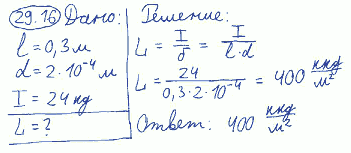 29.16 Дано:
l = 0,3 м
d = 2·10⁻⁴ м
I = 24 кд
L = ?
Решение:
L = I/σ = I/(l·d)
L = 24/(0,3·2·10⁻⁴) = 400 ккд/м²
Ответ: 400 ккд/м²